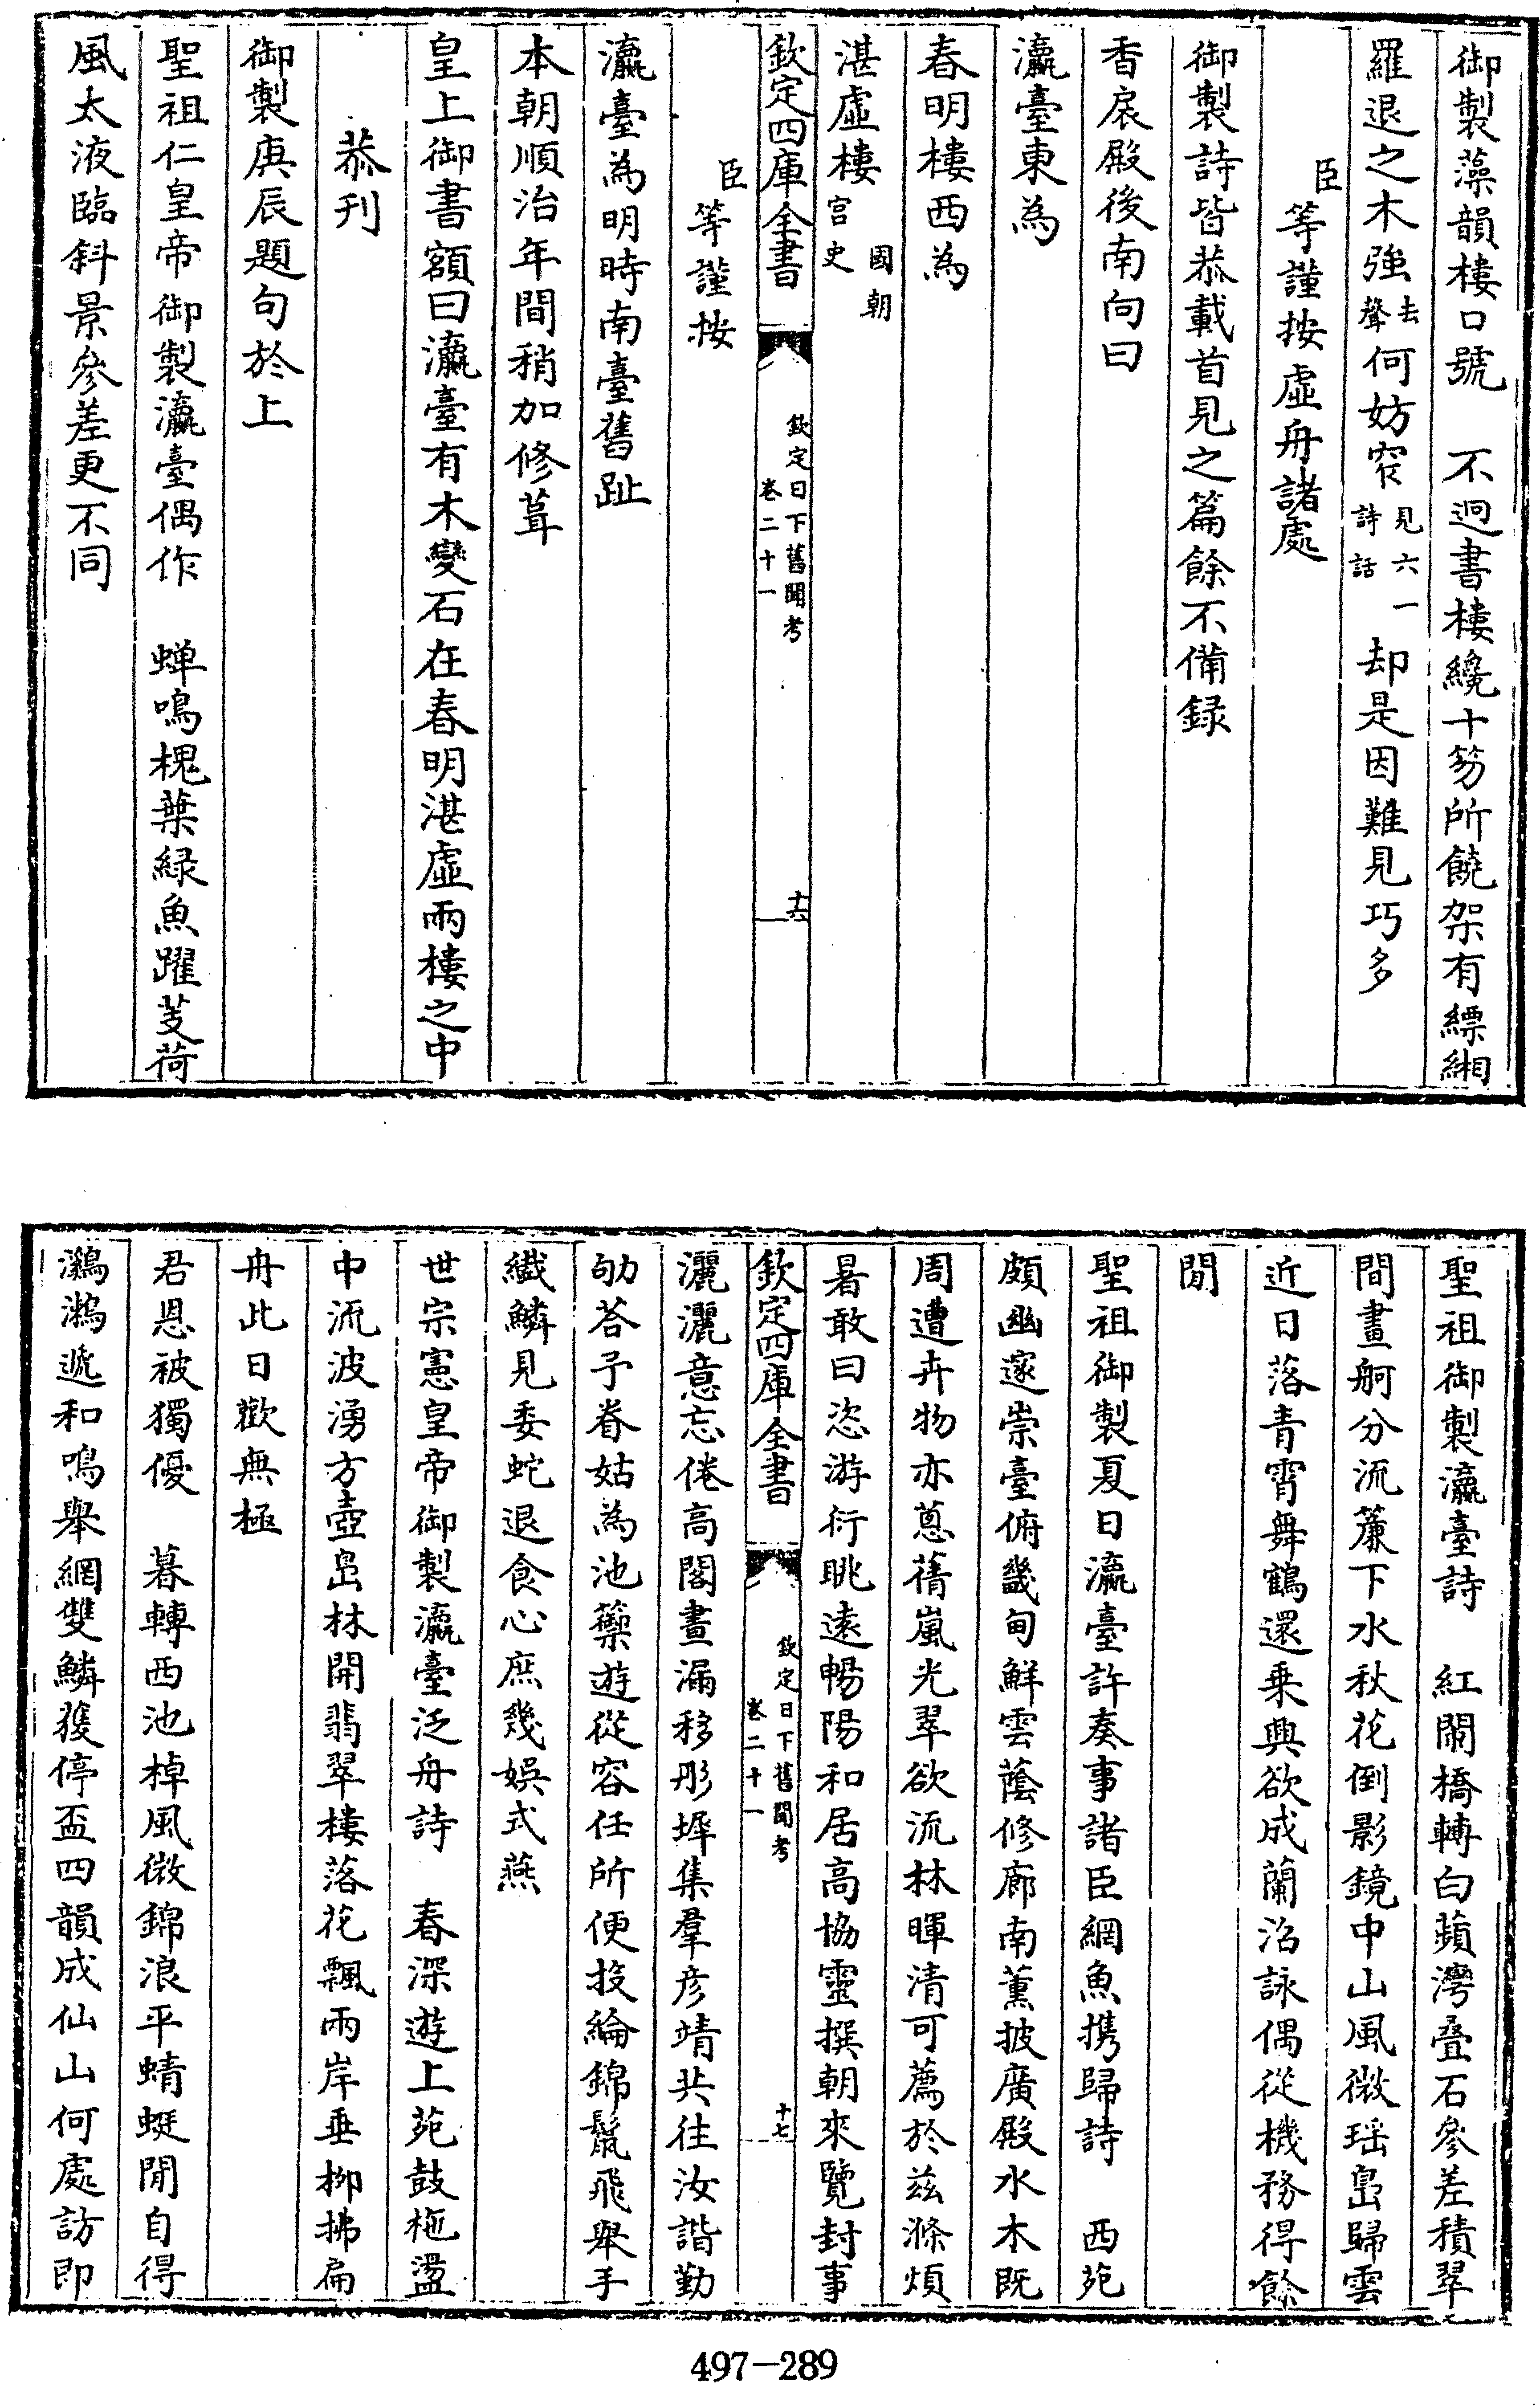 御製藻韻樓口號　不迥書樓纔十笏所饒架有縹緗
羅退之木強去聲何妨窄見六一詩話却是因難見巧多
臣等謹按虛舟諸處
御製詩皆恭載首見之篇餘不備録
香扆殿後南向曰
瀛臺東為
春明樓西為
湛虛樓國朝宫史
欽定四庫全書
欽定日下舊聞考
卷二十一
十六
臣等謹按
瀛臺為明時南臺舊趾
本朝順治年間稍加修葺
皇上御書額曰瀛臺有木變石在春明湛虛兩樓之中
恭刋
御製庚辰題句於上
聖祖仁皇帝御製瀛臺偶作　蝉鳴槐葉緑魚躍芰荷
風太液臨斜景參差更不同
聖祖御製瀛臺詩　紅闌橋轉白蘋灣叠石參差積翠
間畫舸分流簾下水秋花倒影鏡中山風微瑶島歸雲
近日落青霄舞鶴還乗興欲成蘭沼詠偶從機務得餘
閒
聖祖御製夏日瀛臺許奏事諸臣網魚携歸詩　西苑
頗幽邃崇臺俯畿甸鮮雲蔭修廊南薰披廣殿水木既
周遭卉物亦蔥蒨嵐光翠欲流林暉清可薦於兹滌煩
暑敢曰恣游衍眺遠暢陽和居高協靈撰朝來覽封事
欽定四庫全書
欽定日下舊聞考
卷二十一
十七
灑灑意忘倦高閣晝漏移彤墀集羣彦靖共往汝諧勤
劬荅予眷姑為池籞遊從容任所便投綸錦鬣飛舉手
纎鱗見委蛇退食心庶幾娛式燕
世宗憲皇帝御製瀛臺泛舟詩　春深遊上苑鼓枻盪
中流波湧方壺島林開翡翠樓落花飄兩岸垂柳拂扁
舟此日歡無極
君恩被獨優　暮轉西池棹風微錦浪平蜻蜓閒自得
鸂鶒遞和鳴舉網雙鱗獲停盃四韻成仙山何處訪即
497-289